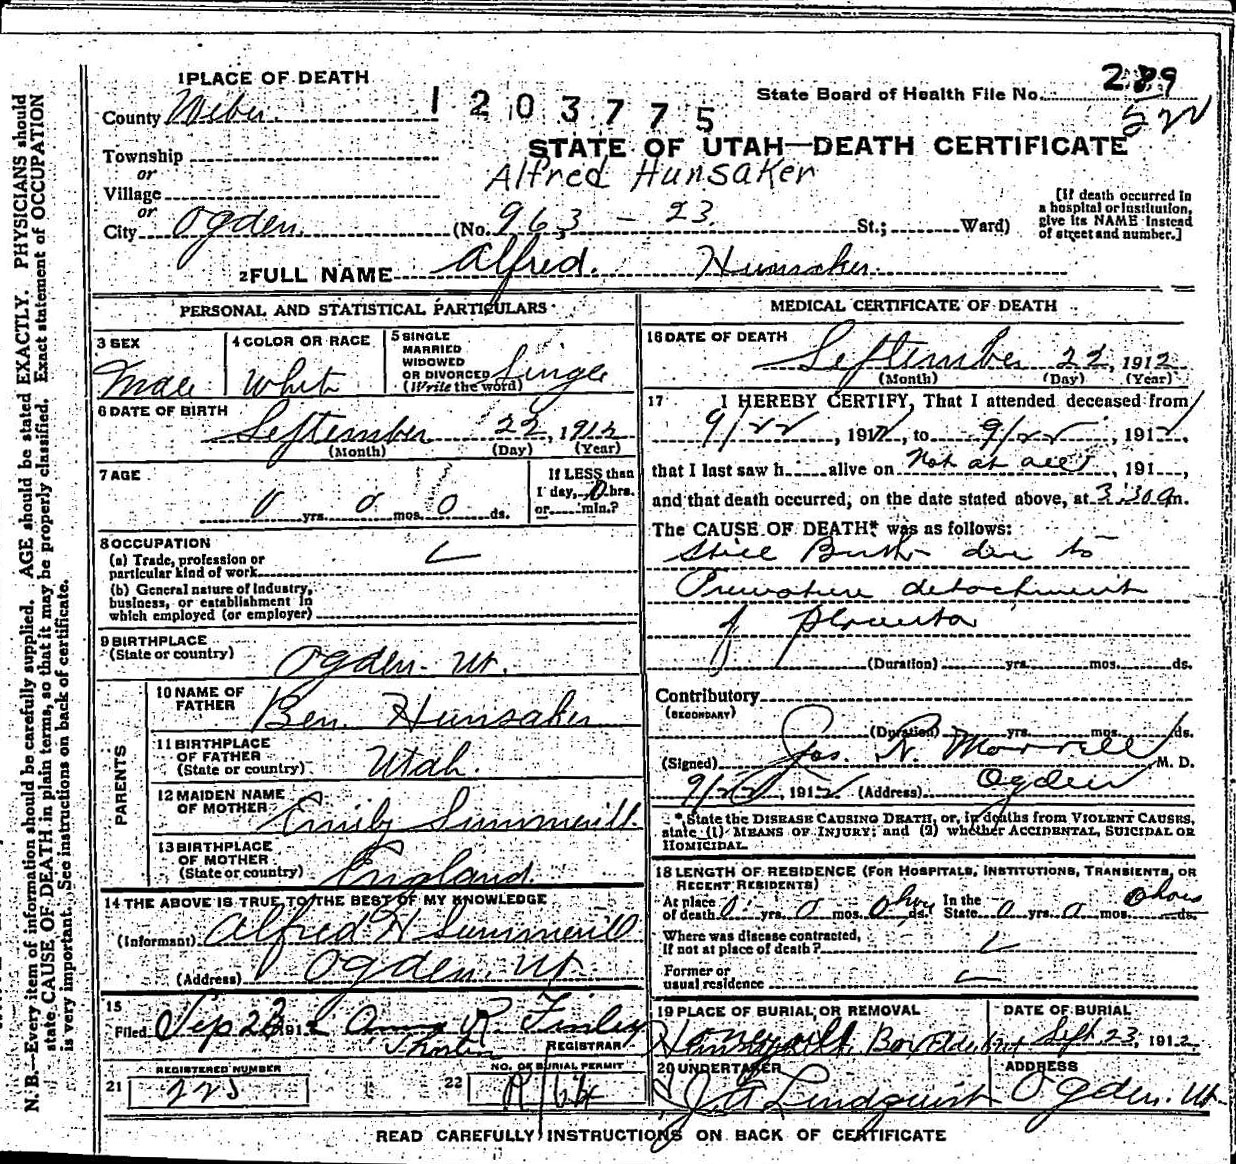 N. B.—Every item of information should be carefully supplied. AGE should be stated EXACTLY. PHYSICIANS should
state CAUSE OF DEATH in plain terms, so that it may be properly classified. Exact statement of OCCUPATION
is very important. See instructions on back of certificate.
1 PLACE OF DEATH
County Weber
1203775
State Board of Health File No. 289
522
STATE OF UTAH—DEATH CERTIFICATE
Alfred Hunsaker
Township
or
Village
or
City Ogden (No. 963 - 23 St.; Ward)
[If death occurred in
a hospital or institution,
give its NAME instead
of street and number.]
2 FULL NAME Alfred Hunsaker
PERSONAL AND STATISTICAL PARTICULARS
3 SEX
Male
4 COLOR OR RACE
White
5 SINGLE
MARRIED
WIDOWED
OR DIVORCED
(Write the word)
Single
6 DATE OF BIRTH
September 22, 1912
(Month) (Day) (Year)
7 AGE
0 yrs. 0 mos. 0 ds.
If LESS than
1 day, 0 hrs.
or min.?
8 OCCUPATION
(a) Trade, profession or
particular kind of work
(b) General nature of Industry,
business, or establishment in
which employed (or employer)
9 BIRTHPLACE
(State or country)
Ogden Ut.
PARENTS
10 NAME OF
FATHER
Ben Hunsaker
11 BIRTHPLACE
OF FATHER
(State or country)
Utah.
12 MAIDEN NAME
OF MOTHER
Emily Summerill
13 BIRTHPLACE
OF MOTHER
(State or country)
England
14 THE ABOVE IS TRUE TO THE BEST OF MY KNOWLEDGE
(Informant) Alfred H Summerill
(Address) Ogden, Ut.
15
Filed Sep 23 191 2 Anna R. Finley
REGISTRAR
REGISTERED NUMBER
21 225
NO. OF BURIAL PERMIT
22 R 64
MEDICAL CERTIFICATE OF DEATH
16 DATE OF DEATH
September 22, 1912
(Month) (Day) (Year)
17 I HEREBY CERTIFY, That I attended deceased from
9/22, 1912, to 9/22, 1912,
that I last saw h alive on Not at all, 191 ,
and that death occurred, on the date stated above, at 3:30 a m.
The CAUSE OF DEATH* was as follows:
Still Birth due to
Premature detachment
of placenta
(Duration) yrs. mos. ds.
Contributory
(SECONDARY)
(Duration) yrs. mos. ds.
(Signed) Jos. R. Morrell M. D.
9/22, 1912 (Address) Ogden
* State the DISEASE CAUSING DEATH, or, in deaths from VIOLENT CAUSES,
state (1) MEANS OF INJURY; and (2) whether ACCIDENTAL, SUICIDAL OR
HOMICIDAL.
18 LENGTH OF RESIDENCE (FOR HOSPITALS, INSTITUTIONS, TRANSIENTS, OR
RECENT RESIDENTS)
At place
of death 0 yrs. 0 mos. 0 hours ds. In the
State 0 yrs. 0 mos. 0 hours ds.
Where was disease contracted,
If not at place of death?
Former or
usual residence
19 PLACE OF BURIAL OR REMOVAL
Honeyville, Box Elder
DATE OF BURIAL
Sept 23, 1912
20 UNDERTAKER
Lindquist
ADDRESS
Ogden, Ut.
READ CAREFULLY INSTRUCTIONS ON BACK OF CERTIFICATE